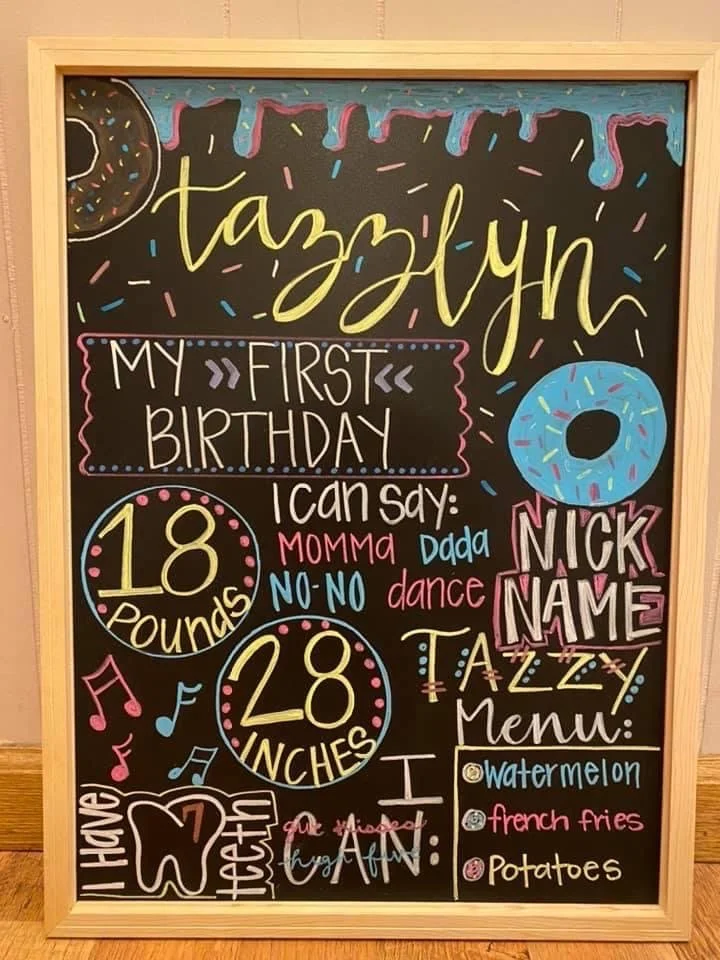 tazzlyn
MY » FIRST «
BIRTHDAY
18
POUNDS
I can say:
MOMMA Dada
NO-NO dance
NICK
NAME
TAZZY
28
INCHES
Menu:
watermelon
french fries
Potatoes
I Have
7
teeth
I
CAN:
give kisses
high five